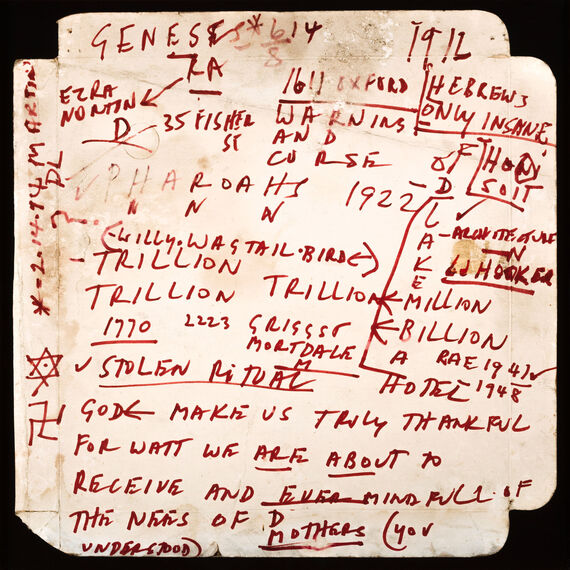 GENESES * 614
8
RA
1912
EZRA
NORTIN
D
35 FISHER
ST
1611 OXFORD
WARNING
AND
CURSE
OF
D
HEBREWS
ONLY INSANE
HONI
SOIT
PHAROAHS
N N N
1922
LAKE
(-WILLY.WAGTAIL.BIRD←)
- TRILLION
TRILLION TRILLION
MILLION
BILLION
ARCHITECTURE
N
LJ HOOKER
1770
2223 GRIGGST
MORTDALE
M
A RAE 1941
1948
HOTEL
✓ STOLEN RITUAL
GOD← MAKE US TRULY THANKFUL
FOR WATT WE ARE ABOUT TO
RECEIVE AND EVER MINDFULL.OF
THE NEES OF D
MOTHERS (YOU
UNDERSTOOD)
*-2.14.74 MARTIN
DL